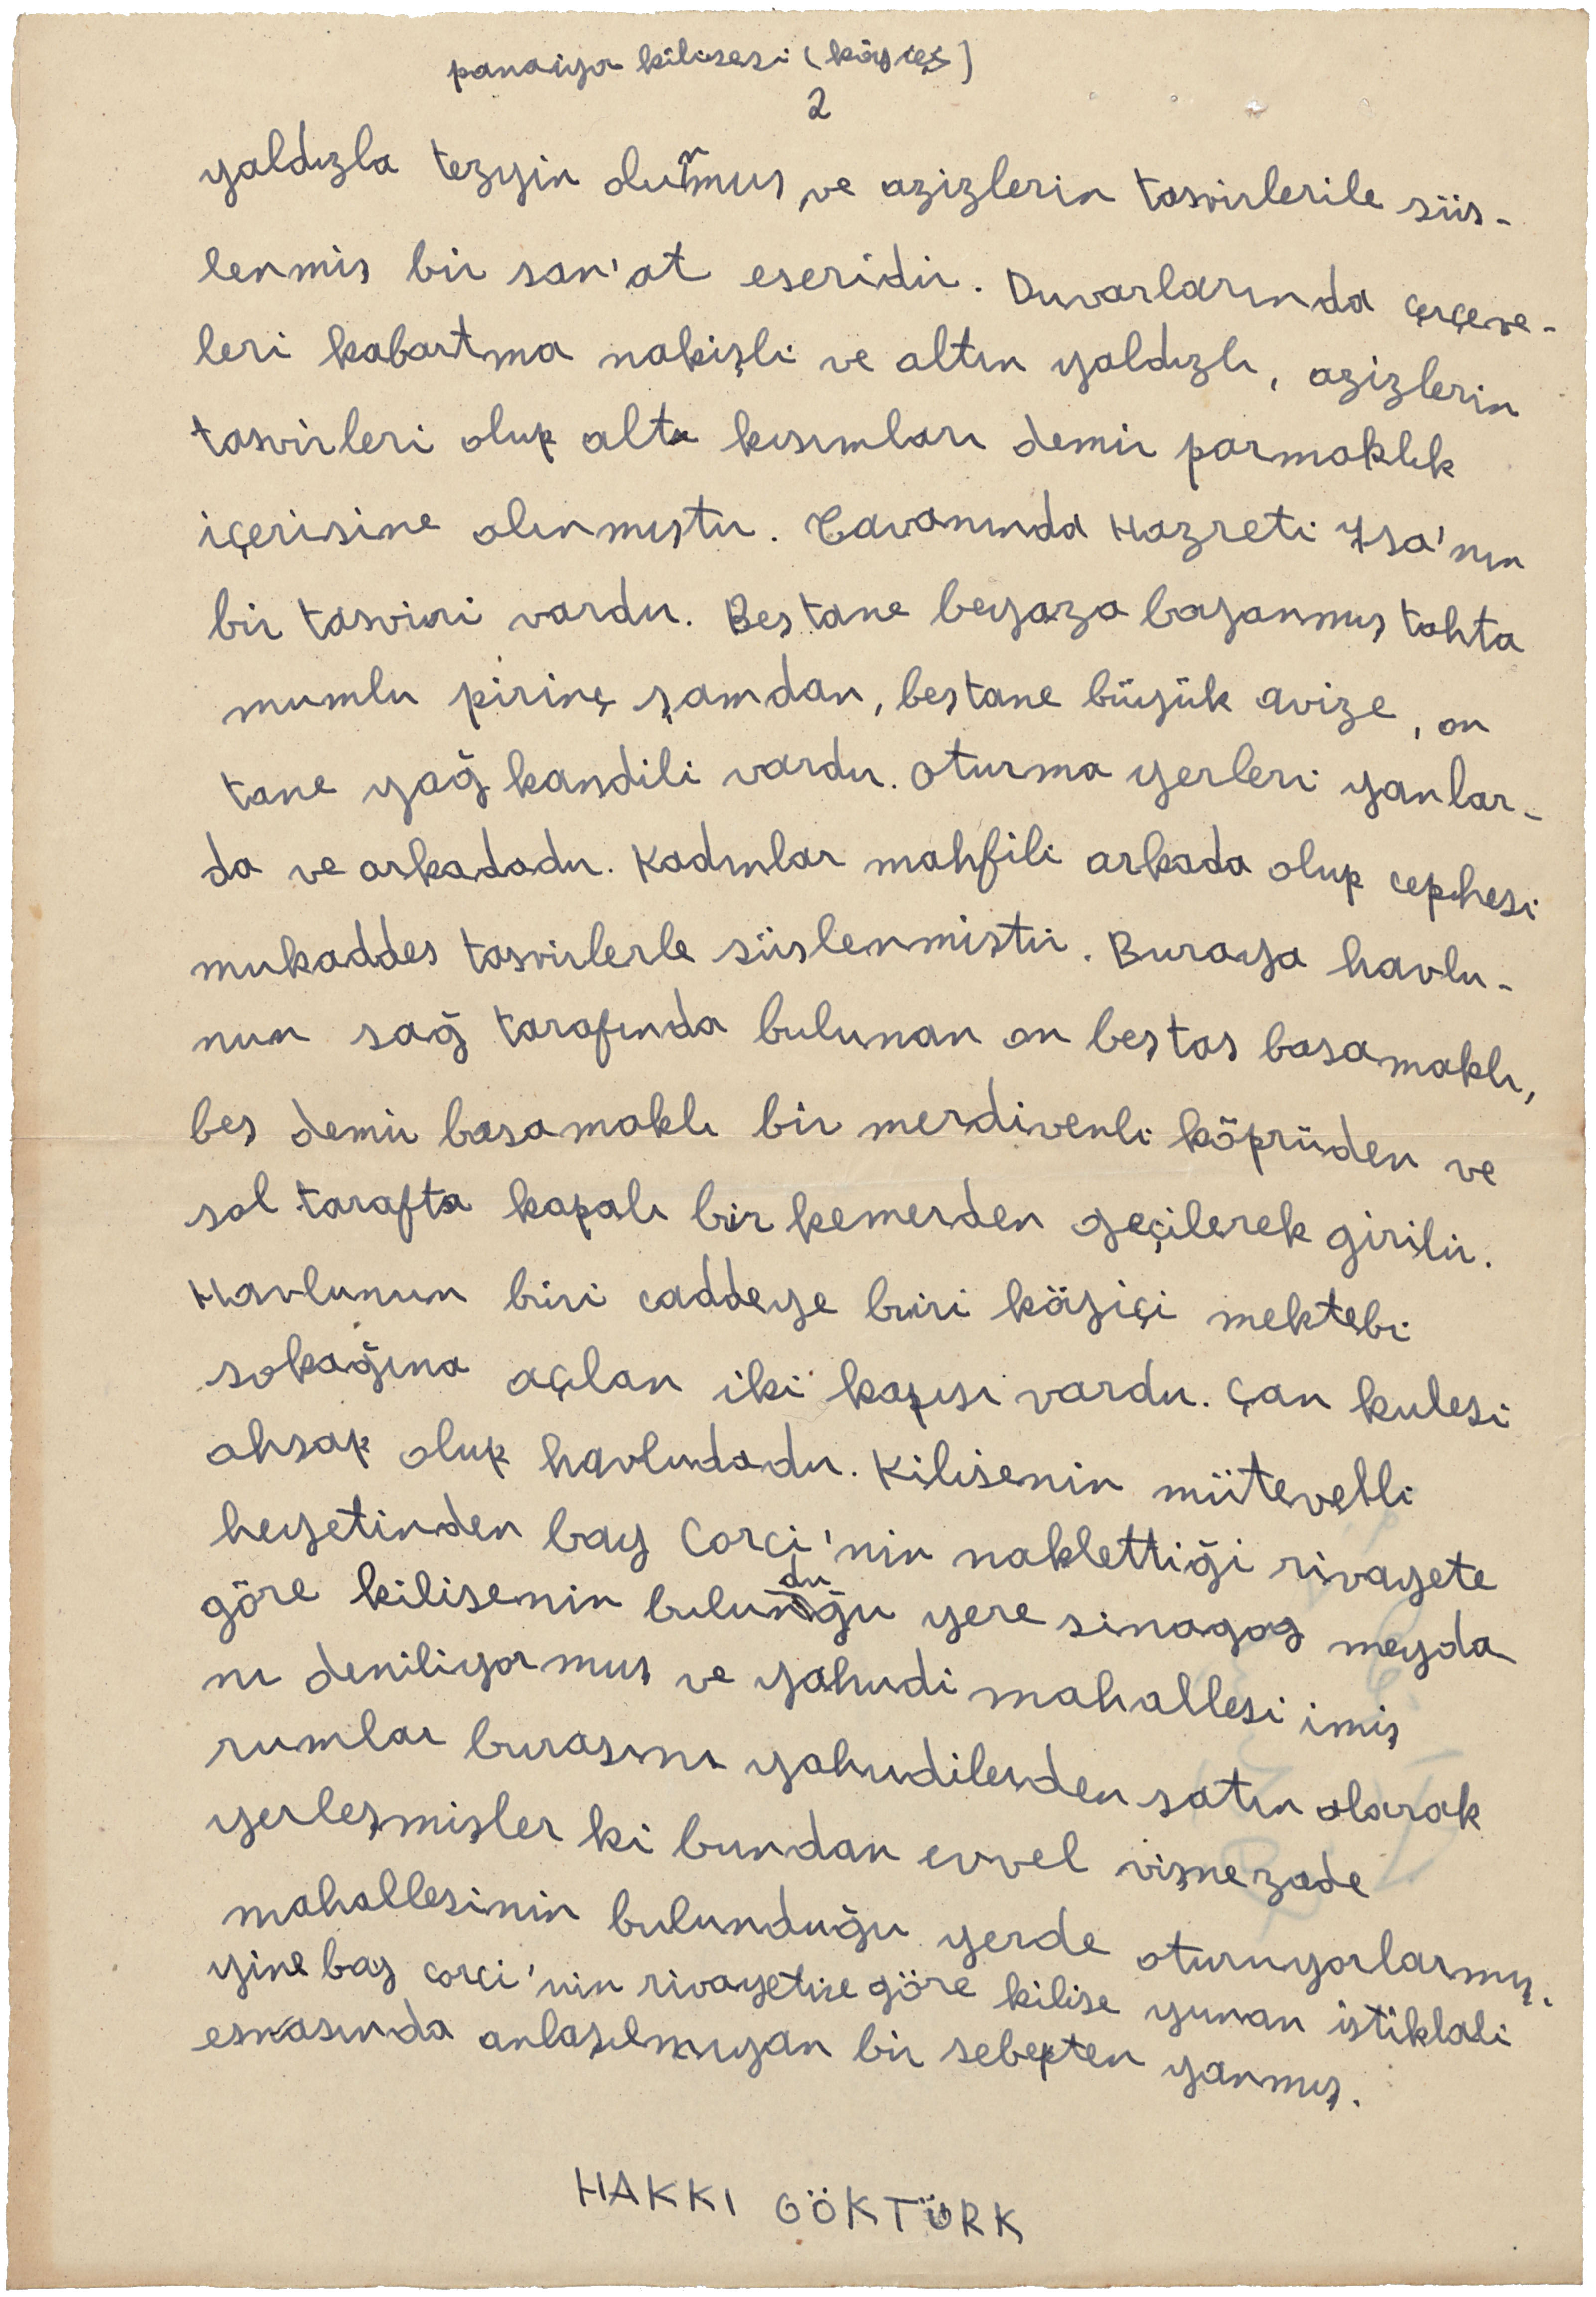 panaiya kilisesi (köyiçi)
2
yaldızla tezyin olunmuş ve azizlerin tasvirlerile süs-
lenmiş bir san'at eseridir. Duvarlarında çerçeve-
leri kabartma nakişli ve altın yaldızlı, azizlerin
tasvirleri olup alt kısımları demir parmaklık
içerisine alınmıştır. Tavanında Hazreti İsa'nın
bir tasviri vardır. Beş tane beyaza boyanmış tahta
mumlu pirinç şamdan, beş tane büyük avize, on
tane yağ kandili vardır. Oturma yerleri yanlar-
da ve arkadadır. Kadınlar mahfili arkada olup cephesi
mukaddes tasvirlerle süslenmiştir. Buraya havlu-
nun sağ tarafında bulunan on beş taş basamaklı,
beş demir basamaklı bir merdivenli köprüden ve
sol tarafta kapalı bir kemerden geçilerek girilir.
Havlunun biri caddeye biri köyiçi mektebi
sokağına açılan iki kapısı vardır. Çan kulesi
ahşap olup havludadır. Kilisenin mütevelli
heyetinden bay Corci'nin naklettiği rivayete
göre kilisenin bulunduğu yere sinagog meyda
nı deniliyormuş ve yahudi mahallesi imiş
rumlar burasını yahudilerden satın alarak
yerleşmişler ki bundan evvel vişnezade
mahallesinin bulunduğu yerde oturuyorlarmış.
yine bay corci'nin rivayetine göre kilise yunan istiklali
esnasında anlaşılmıyan bir sebepten yanmış.
HAKKI GÖKTÜRK